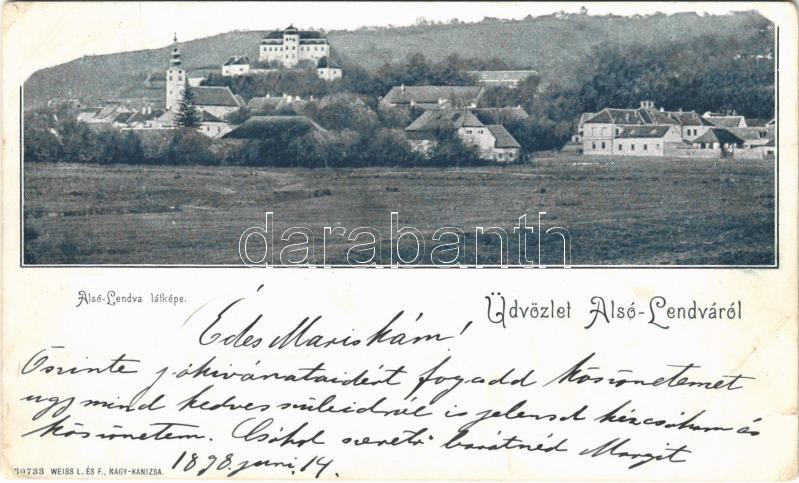 darabanth.com
Alsó-Lendva látképe.
Üdvözlet Alsó-Lendváról
Édes Mariskám!
Őszinte jókivánataidért fogadd köszönetemet
ugy mind kedves szüleidnél is jelensd kézcsókom és
köszönetem. Csókol szerető barátnéd Margit
1898. juni. 14.
30733 WEISS L. ÉS F., NAGY-KANIZSA.